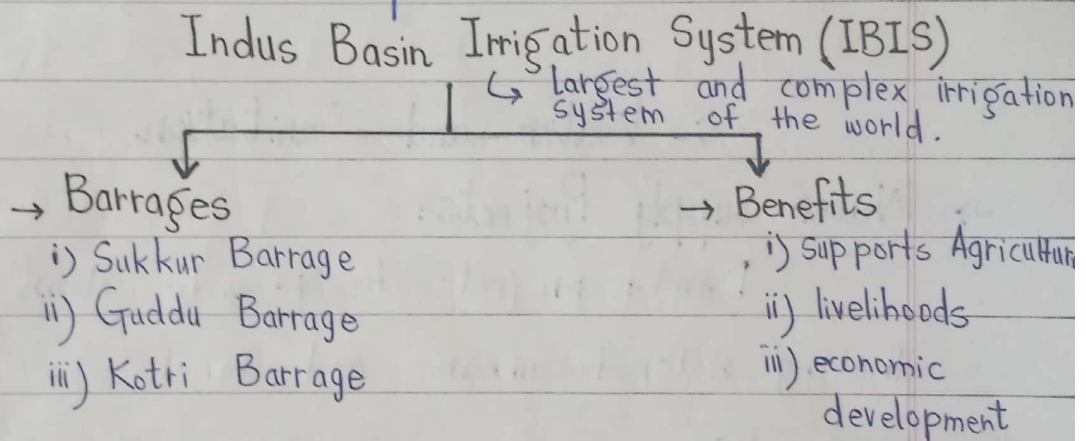 Indus Basin Irrigation System (IBIS)
↳ Largest and complex irrigation
system of the world.
→ Barrages
i) Sukkur Barrage
ii) Guddu Barrage
iii) Kotri Barrage
→ Benefits
i) Supports Agricultur
ii) livelihoods
iii) economic
development